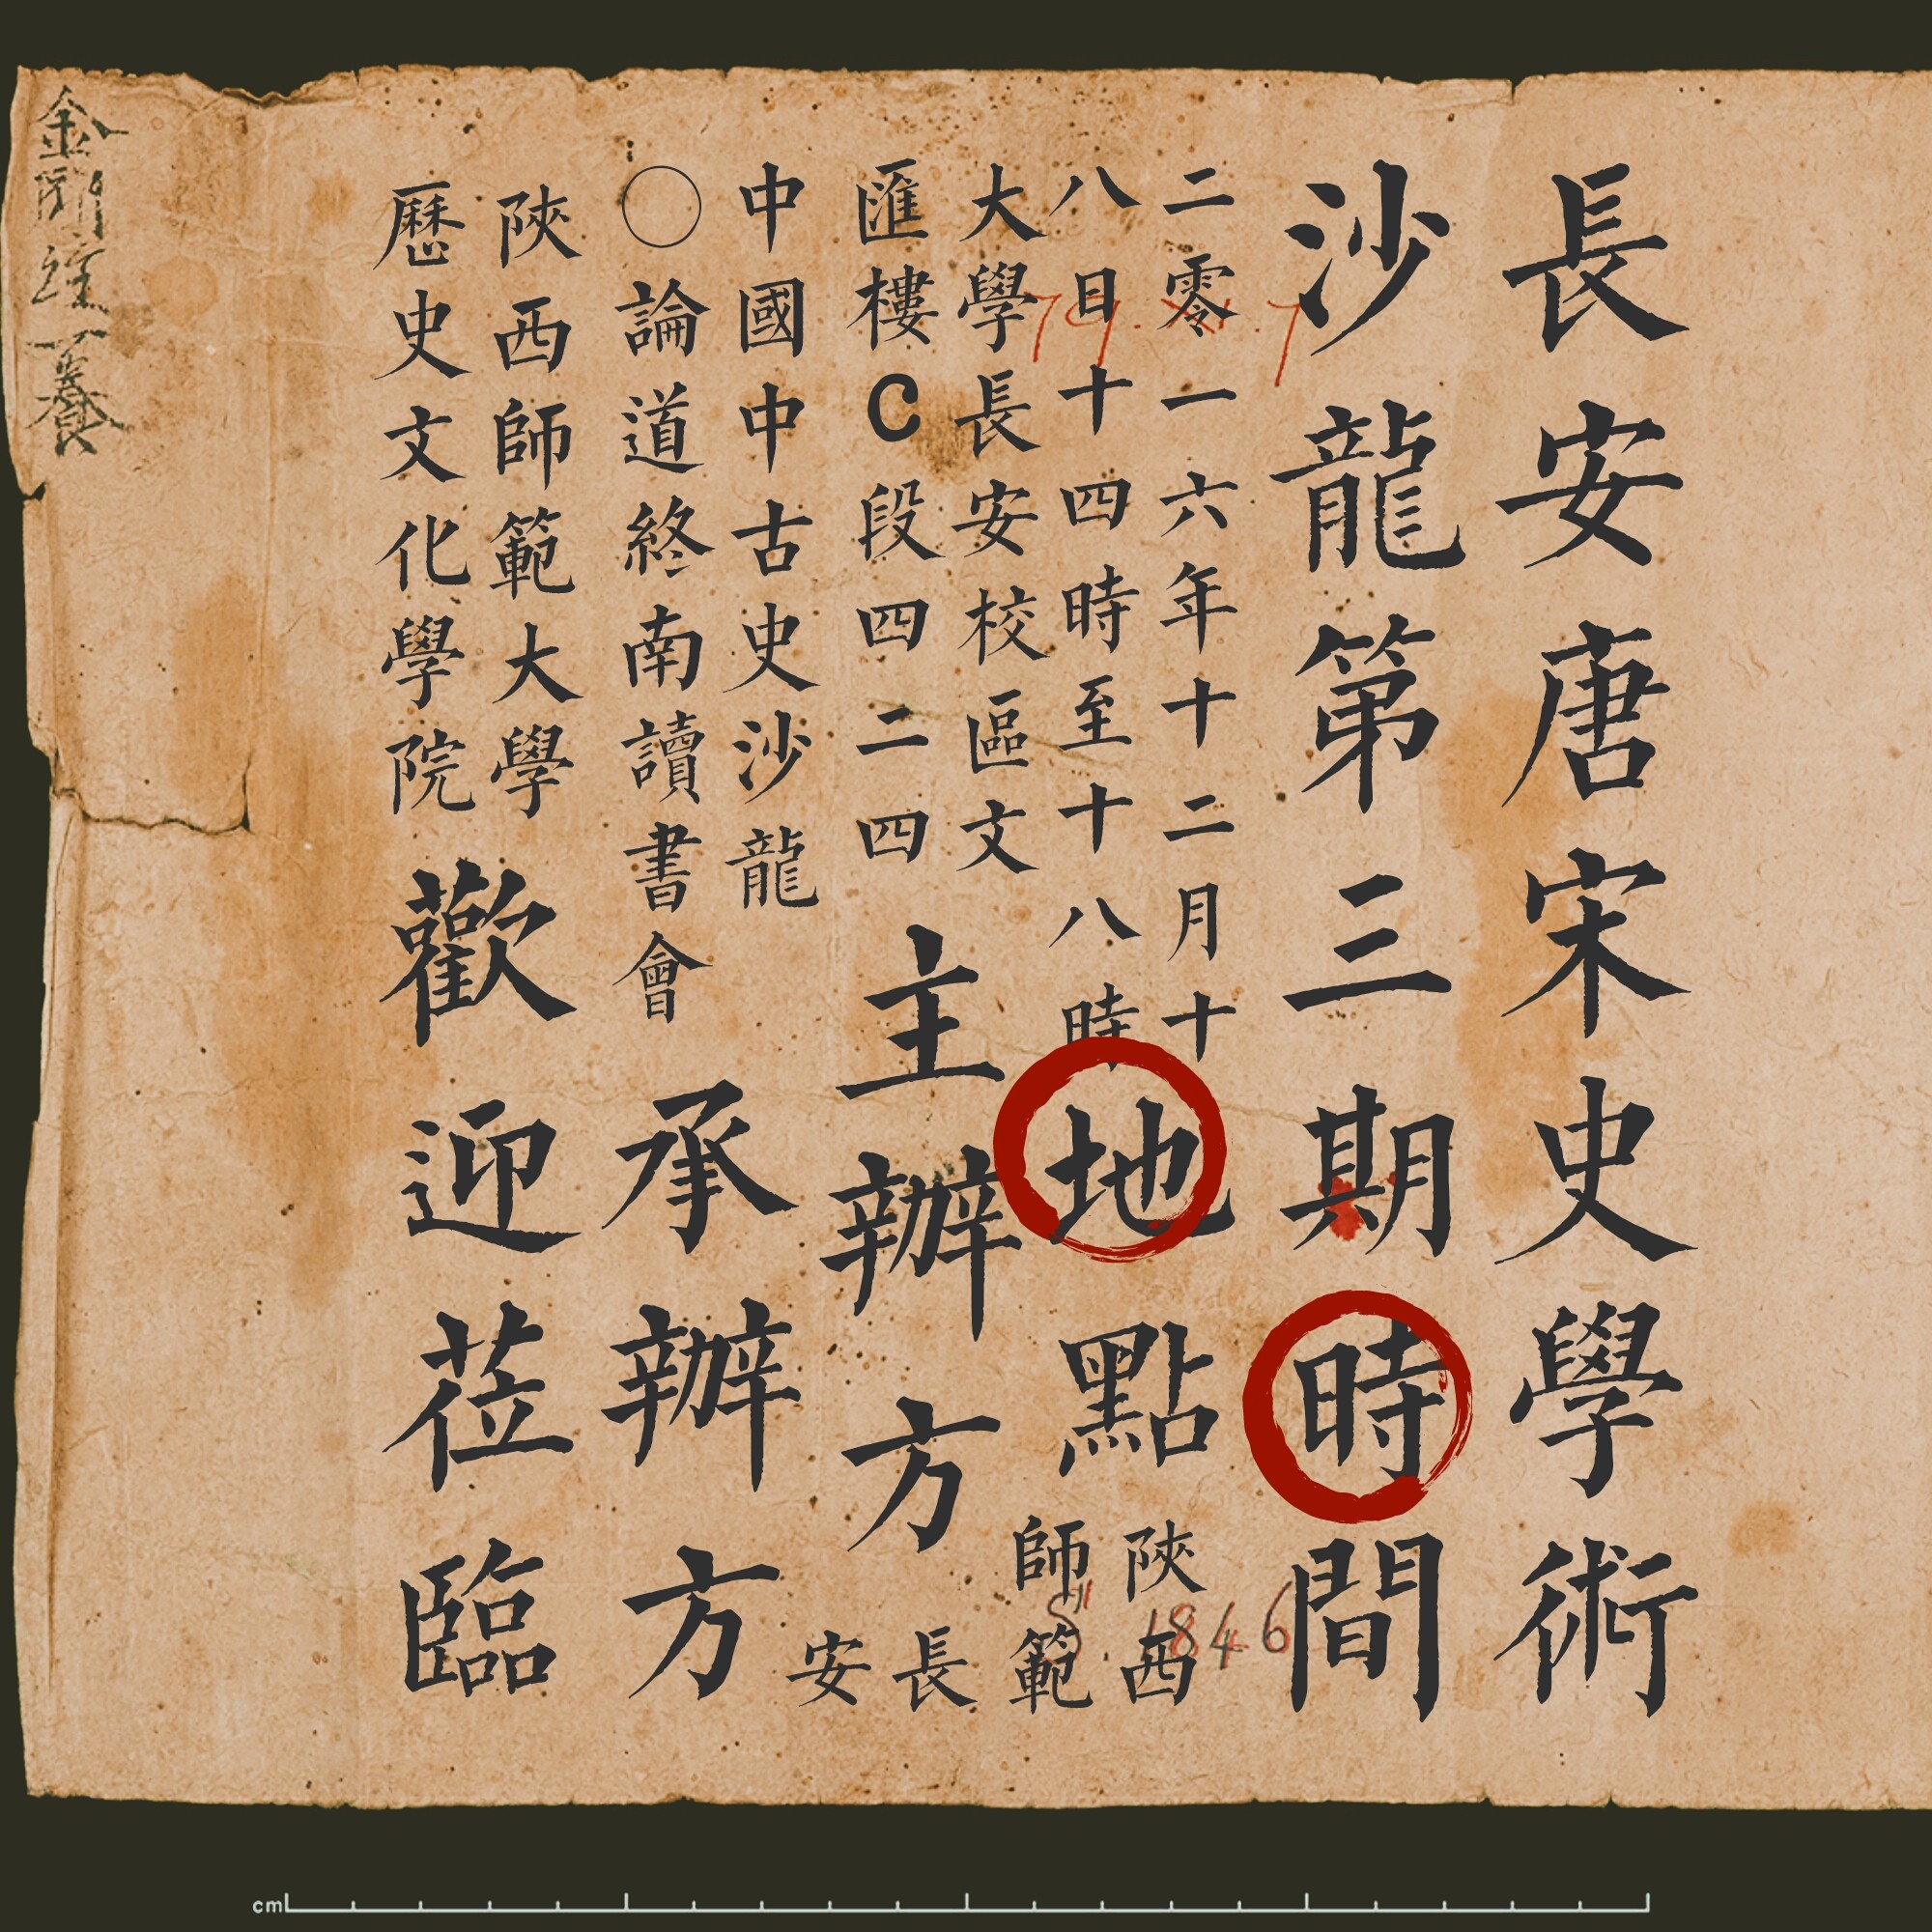 長安唐宋史學術
沙龍第三期時間
二零一六年十二月十
八日十四時至十八時
地點
陝西
師範
大學長安校區文
匯樓C段四二四
主辦方
長
安
中國中古史沙龍
〇論道終南讀書會
承辦方
陝西師範大學
歷史文化學院
歡迎莅臨
金剛經一
S. 1846
cm